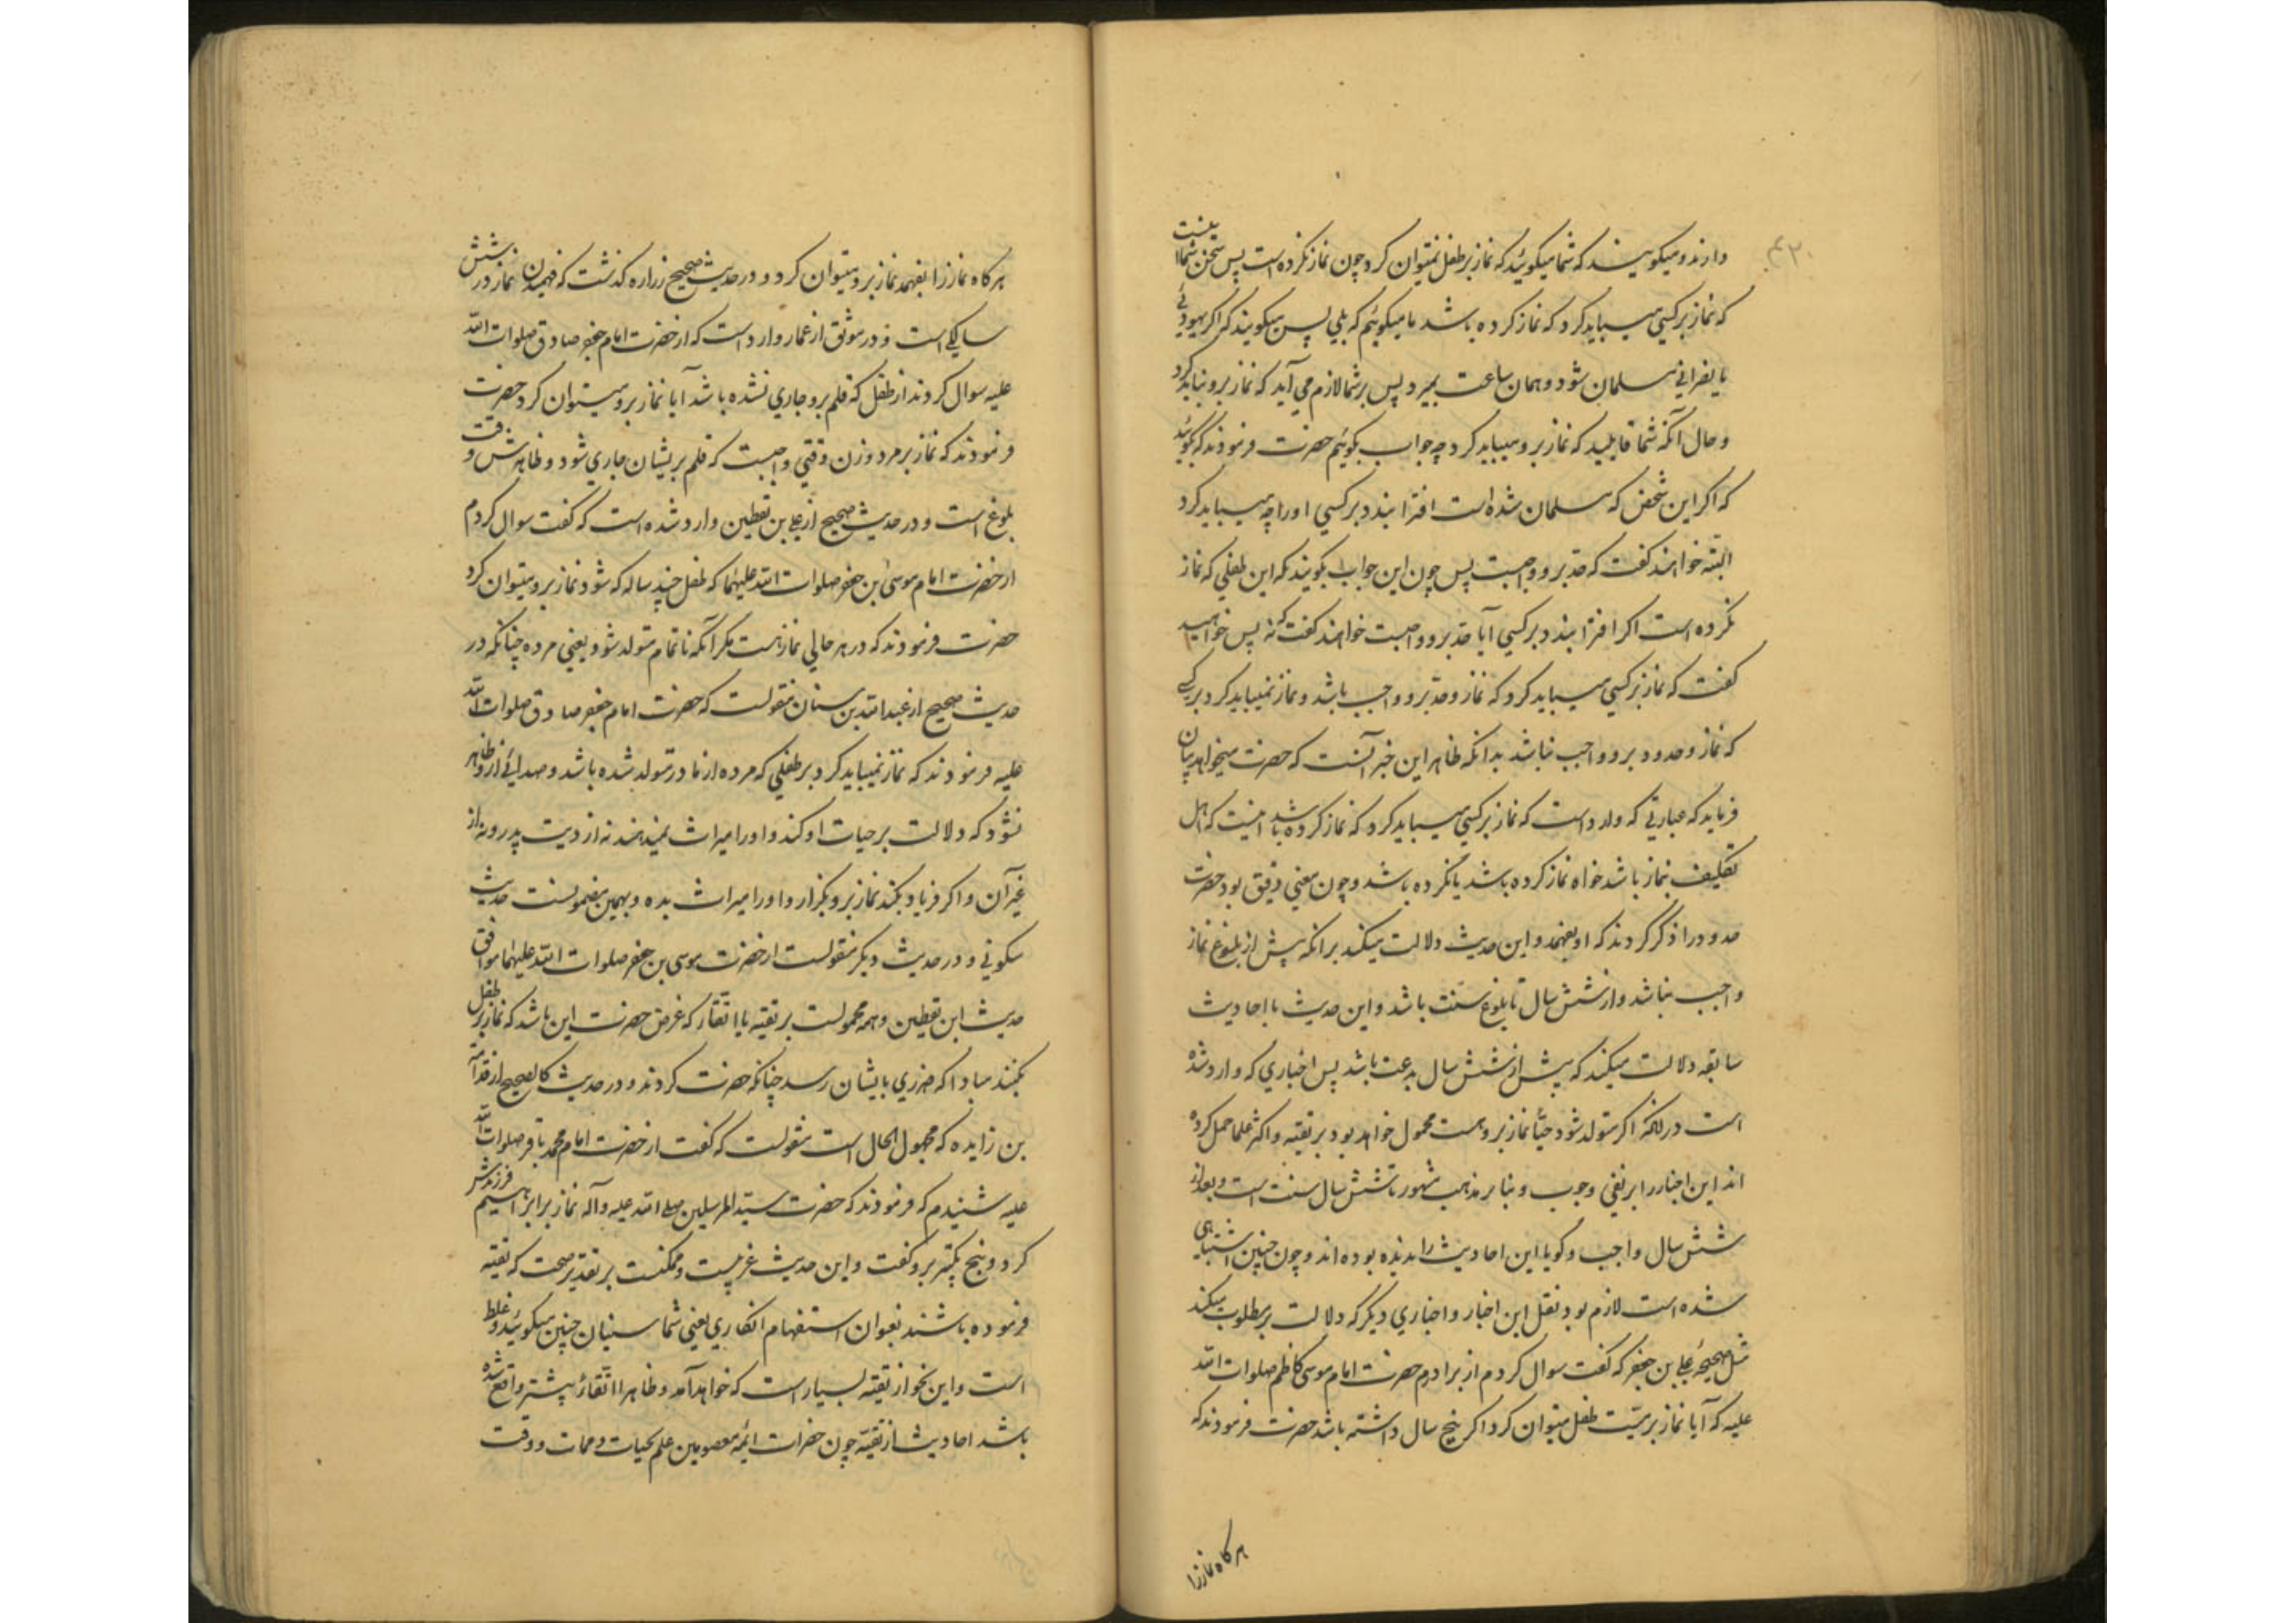 ۴۳۰
دارند و میکویند که شما میکوئید که نماز بر طفل نمیتوان کرد چون نماز نکرده است پس سخن شما اینست
که نماز بر کسی میباید کرد که نماز کرده باشد ما میکوئیم که بلی پس میکویند که اکر یهودئی
یا نصرانی مسلمان شود و همان ساعت بمیرد پس بر شما لازم می آید که نماز برو نباید کرد
و حال آنکه شما قایلید که نماز برو میباید کرد چه جواب بکوئیم حضرت فرمودند که بکوئید
که اکر این شخص که مسلمان شده است افترا بندد بر کسی او را چه میباید کرد
البته خواهند کفت که حد برو واجبست پس چون این جواب بکویند که این طفلی که نماز
نکرده است اکر افترا بندد بر کسی آیا حد برو واجبست خواهند کفت که نه پس خواهید
کفت که نماز بر کسی میباید کرد که نماز و حد برو واجب باشد و نماز نمیباید کرد بر کسی
که نماز و حدود برو واجب نباشد بدانکه ظاهر این خبر آنست که حضرت میخواهد بیان
فرماید که عبارتی که وارد است که نماز بر کسی میباید کرد که نماز کرده باشد اینست که اهل
تکلیف نماز باشد خواه نماز کرده باشد یا نکرده باشد و چون معنی دقیق بود حضرت
حدود را ذکر کردند که او بفهمد و این حدیث دلالت میکند برانکه پیش از بلوغ نماز
واجب نباشد و از شش سال تا بلوغ سنت باشد و این حدیث با احادیث
سابقه دلالت میکند که پیش از شش سال بدعت باشد پس اخباری که وارد شده
است در انکه اکر متولد شود حیّاً نماز برو هست محمول خواهد بود بر تقیه و اکثر علما حمل کرده
اند این اخبار را بر نفی وجوب و بنا بر مذهب مشهور تا شش سال سنت است و بعد از
شش سال واجب و کویا این احادیث را ندیده بوده اند و چون چنین اشتباهی
شده است لازم بود نقل این اخبار و اخباری دیکر که دلالت بر مطلوب میکند
مثل صحیحهٔ علی بن جعفر که کفت سوال کردم از برادرم حضرت امام موسی کاظم صلوات الله
علیه که آیا نماز بر میّت طفل میتوان کرد اکر پنج سال داشته باشد حضرت فرمودند که
هرکاه نماز را
هرکاه نماز را بفهمد نماز برو میتوان کرد و در حدیث صحیح زراره کذشت که فهمیدن نماز در شش
سالکی است و در موثق از عمار وارد است که از حضرت امام جعفر صادق صلوات الله
علیه سوال کردند از طفل که قلم برو جاری نشده باشد آیا نماز برو میتوان کرد حضرت
فرمودند که نماز بر مرد و زن وقتی واجبست که قلم بریشان جاری شود و ظاهرش وقت
بلوغ است و در حدیث صحیح از علی بن یقطین وارد شده است که کفت سوال کردم
از حضرت امام موسی بن جعفر صلوات الله علیهما که طفل چند ساله که شود نماز برو میتوان کرد
حضرت فرمودند که در هر حالی نماز هست مکر آنکه ناتمام متولد شود یعنی مرده چنانکه در
حدیث صحیح از عبدالله بن سنان منقولست که حضرت امام جعفر صادق صلوات الله
علیه فرمودند که نماز نمیباید کرد بر طفلی که مرده از مادر متولد شده باشد و صدائی ازو ظاهر
نشود که دلالت بر حیات او کند و او را میراث نمیدهند نه از دیت پدر و نه از
غیر آن و اکر فریاد بکند نماز برو بکزار و او را میراث بده و بهمین مضمونست حدیث
سکونی و در حدیث دیکر منقولست از حضرت موسی بن جعفر صلوات الله علیهما موافق
حدیث ابن یقطین و همه محمولست بر تقیه یا اتقا که غرض حضرت این باشد که نماز بر طفل
بکنند مبادا که ضرری بایشان رسد چنانکه حضرت کردند و در حدیث کالصحیح از قدامة
بن زایده که مجهول الحال است منقولست که کفت از حضرت امام محمد باقر صلوات الله
علیه شنیدم که فرمودند که حضرت سید المرسلین صلی الله علیه وآله نماز بر ابراهیم فرزندش
کرد و پنج تکبیر برو کفت و این حدیث غریبست و ممکنست بر تقدیر صحت که تقیه
فرموده باشند بعنوان استفهام انکاری یعنی شما سنیان چنین میکوئید و غلط
است و این نحو از تقیه بسیار است که خواهد آمد و ظاهرا اتقا پیشتر واقع شده
باشد احادیث از تقیه چون حضرات ائمه معصومین علم بحیات و ممات و وقت